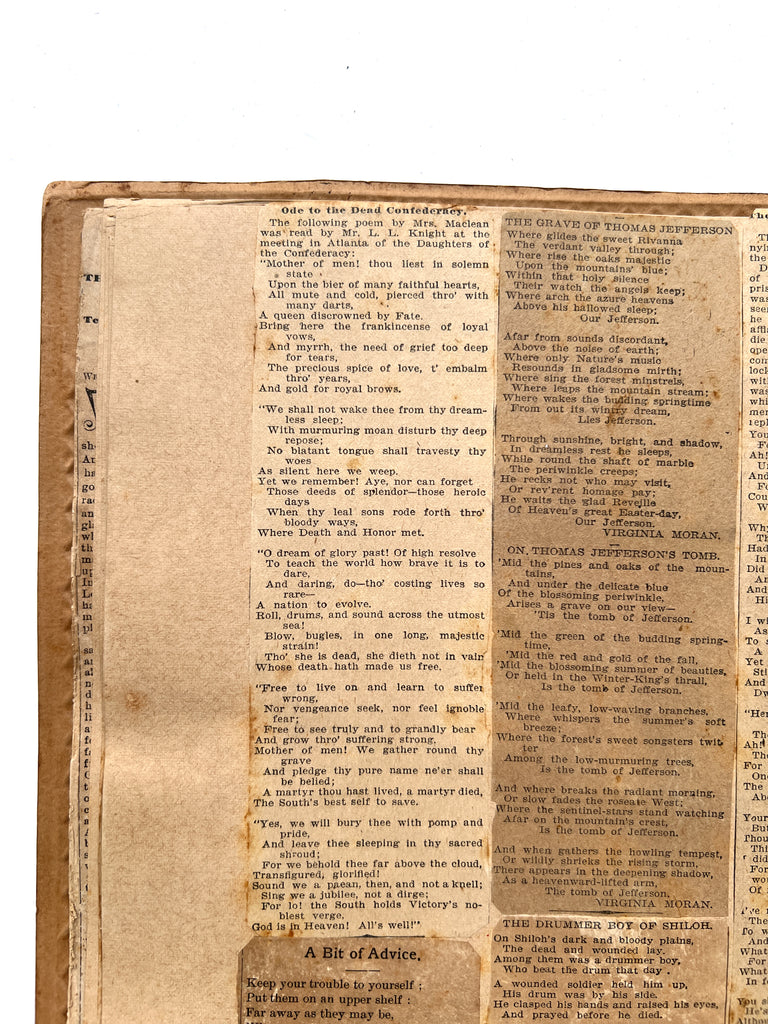 Ode to the Dead Confederacy.
The following poem by Mrs. Maclean
was read by Mr. L. L. Knight at the
meeting in Atlanta of the Daughters of
the Confederacy:
"Mother of men! thou liest in solemn
state
Upon the bier of many faithful hearts,
All mute and cold, pierced thro' with
many darts,
A queen discrowned by Fate.
Bring here the frankincense of loyal
vows,
And myrrh, the need of grief too deep
for tears,
The precious spice of love, t' embalm
thro' years,
And gold for royal brows.
"We shall not wake thee from thy dream-
less sleep;
With murmuring moan disturb thy deep
repose;
No blatant tongue shall travesty thy
woes
As silent here we weep.
Yet we remember! Aye, nor can forget
Those deeds of splendor—those heroic
days
When thy leal sons rode forth thro'
bloody ways,
Where Death and Honor met.
"O dream of glory past! Of high resolve
To teach the world how brave it is to
dare,
And daring, do—tho' costing lives so
rare—
A nation to evolve.
Roll, drums, and sound across the utmost
sea!
Blow, bugles, in one long, majestic
strain!
Tho' she is dead, she dieth not in vain
Whose death hath made us free.
"Free to live on and learn to suffer
wrong,
Nor vengeance seek, nor feel ignoble
fear;
Free to see truly and to grandly bear
And grow thro' suffering strong.
Mother of men! We gather round thy
grave
And pledge thy pure name ne'er shall
be belied;
A martyr thou hast lived, a martyr died,
The South's best self to save.
"Yes, we will bury thee with pomp and
pride,
And leave thee sleeping in thy sacred
shroud;
For we behold thee far above the cloud,
Transfigured, glorified!
Sound we a paean, then, and not a knell;
Sing we a jubilee, not a dirge;
For lo! the South holds Victory's no-
blest verge,
God is in Heaven! All's well!"
A Bit of Advice.
Keep your trouble to yourself;
Put them on an upper shelf;
Far away as they may be,
THE GRAVE OF THOMAS JEFFERSON
Where glides the sweet Rivanna
The verdant valley through;
Where rise the oaks majestic
Upon the mountains' blue;
Within that holy silence
Their watch the angels keep;
Where arch the azure heavens
Above his hallowed sleep;
Our Jefferson.
Afar from sounds discordant,
Above the noise of earth;
Where only Nature's music
Resounds in gladsome mirth;
Where sing the forest minstrels,
Where leaps the mountain stream;
Where wakes the budding springtime
From out its wintry dream,
Lies Jefferson.
Through sunshine, bright, and shadow,
In dreamless rest he sleeps,
While round the shaft of marble
The periwinkle creeps;
He recks not who may visit,
Or rev'rent homage pay;
He waits the glad Reveille
Of Heaven's great Easter-day,
Our Jefferson.
VIRGINIA MORAN.
ON THOMAS JEFFERSON'S TOMB.
'Mid the pines and oaks of the moun-
tains,
And under the delicate blue
Of the blossoming periwinkle,
Arises a grave on our view—
'Tis the tomb of Jefferson.
'Mid the green of the budding spring-
time,
'Mid the red and gold of the fall,
'Mid the blossoming summer of beauties,
Or held in the Winter-King's thrall,
Is the tomb of Jefferson.
'Mid the leafy, low-waving branches,
Where whispers the summer's soft
breeze;
Where the forest's sweet songsters twit-
ter
Among the low-murmuring trees,
Is the tomb of Jefferson.
And where breaks the radiant morning,
Or slow fades the roseate West;
Where the sentinel-stars stand watching
Afar on the mountain's crest,
Is the tomb of Jefferson.
And when gathers the howling tempest,
Or wildly shrieks the rising storm,
There appears in the deepening shadow,
As a heavenward-lifted arm,
The tomb of Jefferson.
VIRGINIA MORAN.
THE DRUMMER BOY OF SHILOH.
On Shiloh's dark and bloody plains,
The dead and wounded lay.
Among them was a drummer boy,
Who beat the drum that day.
A wounded soldier held him up,
His drum was by his side.
He clasped his hands and raised his eyes,
And prayed before he died.